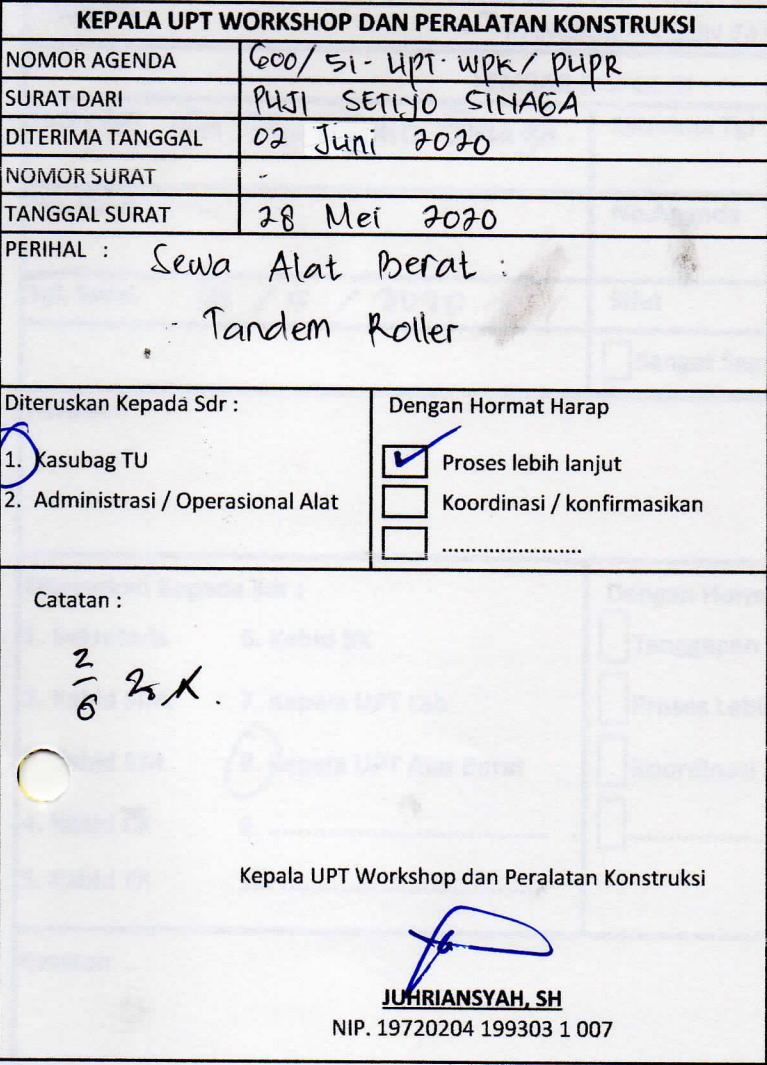 KEPALA UPT WORKSHOP DAN PERALATAN KONSTRUKSI
NOMOR AGENDA 600/ 51- UPT. WPK/ PUPR
SURAT DARI PUJI SETIJO SINAGA
DITERIMA TANGGAL 02 Juni 2020
NOMOR SURAT -
TANGGAL SURAT 28 Mei 2020
PERIHAL : Sewa Alat Berat :
Tandem Roller
Diteruskan Kepada Sdr :
Dengan Hormat Harap
1. Kasubag TU
Proses lebih lanjut
2. Administrasi / Operasional Alat
Koordinasi / konfirmasikan
..............................
Catatan :
2/6
Kepala UPT Workshop dan Peralatan Konstruksi
JUHRIANSYAH, SH
NIP. 19720204 199303 1 007